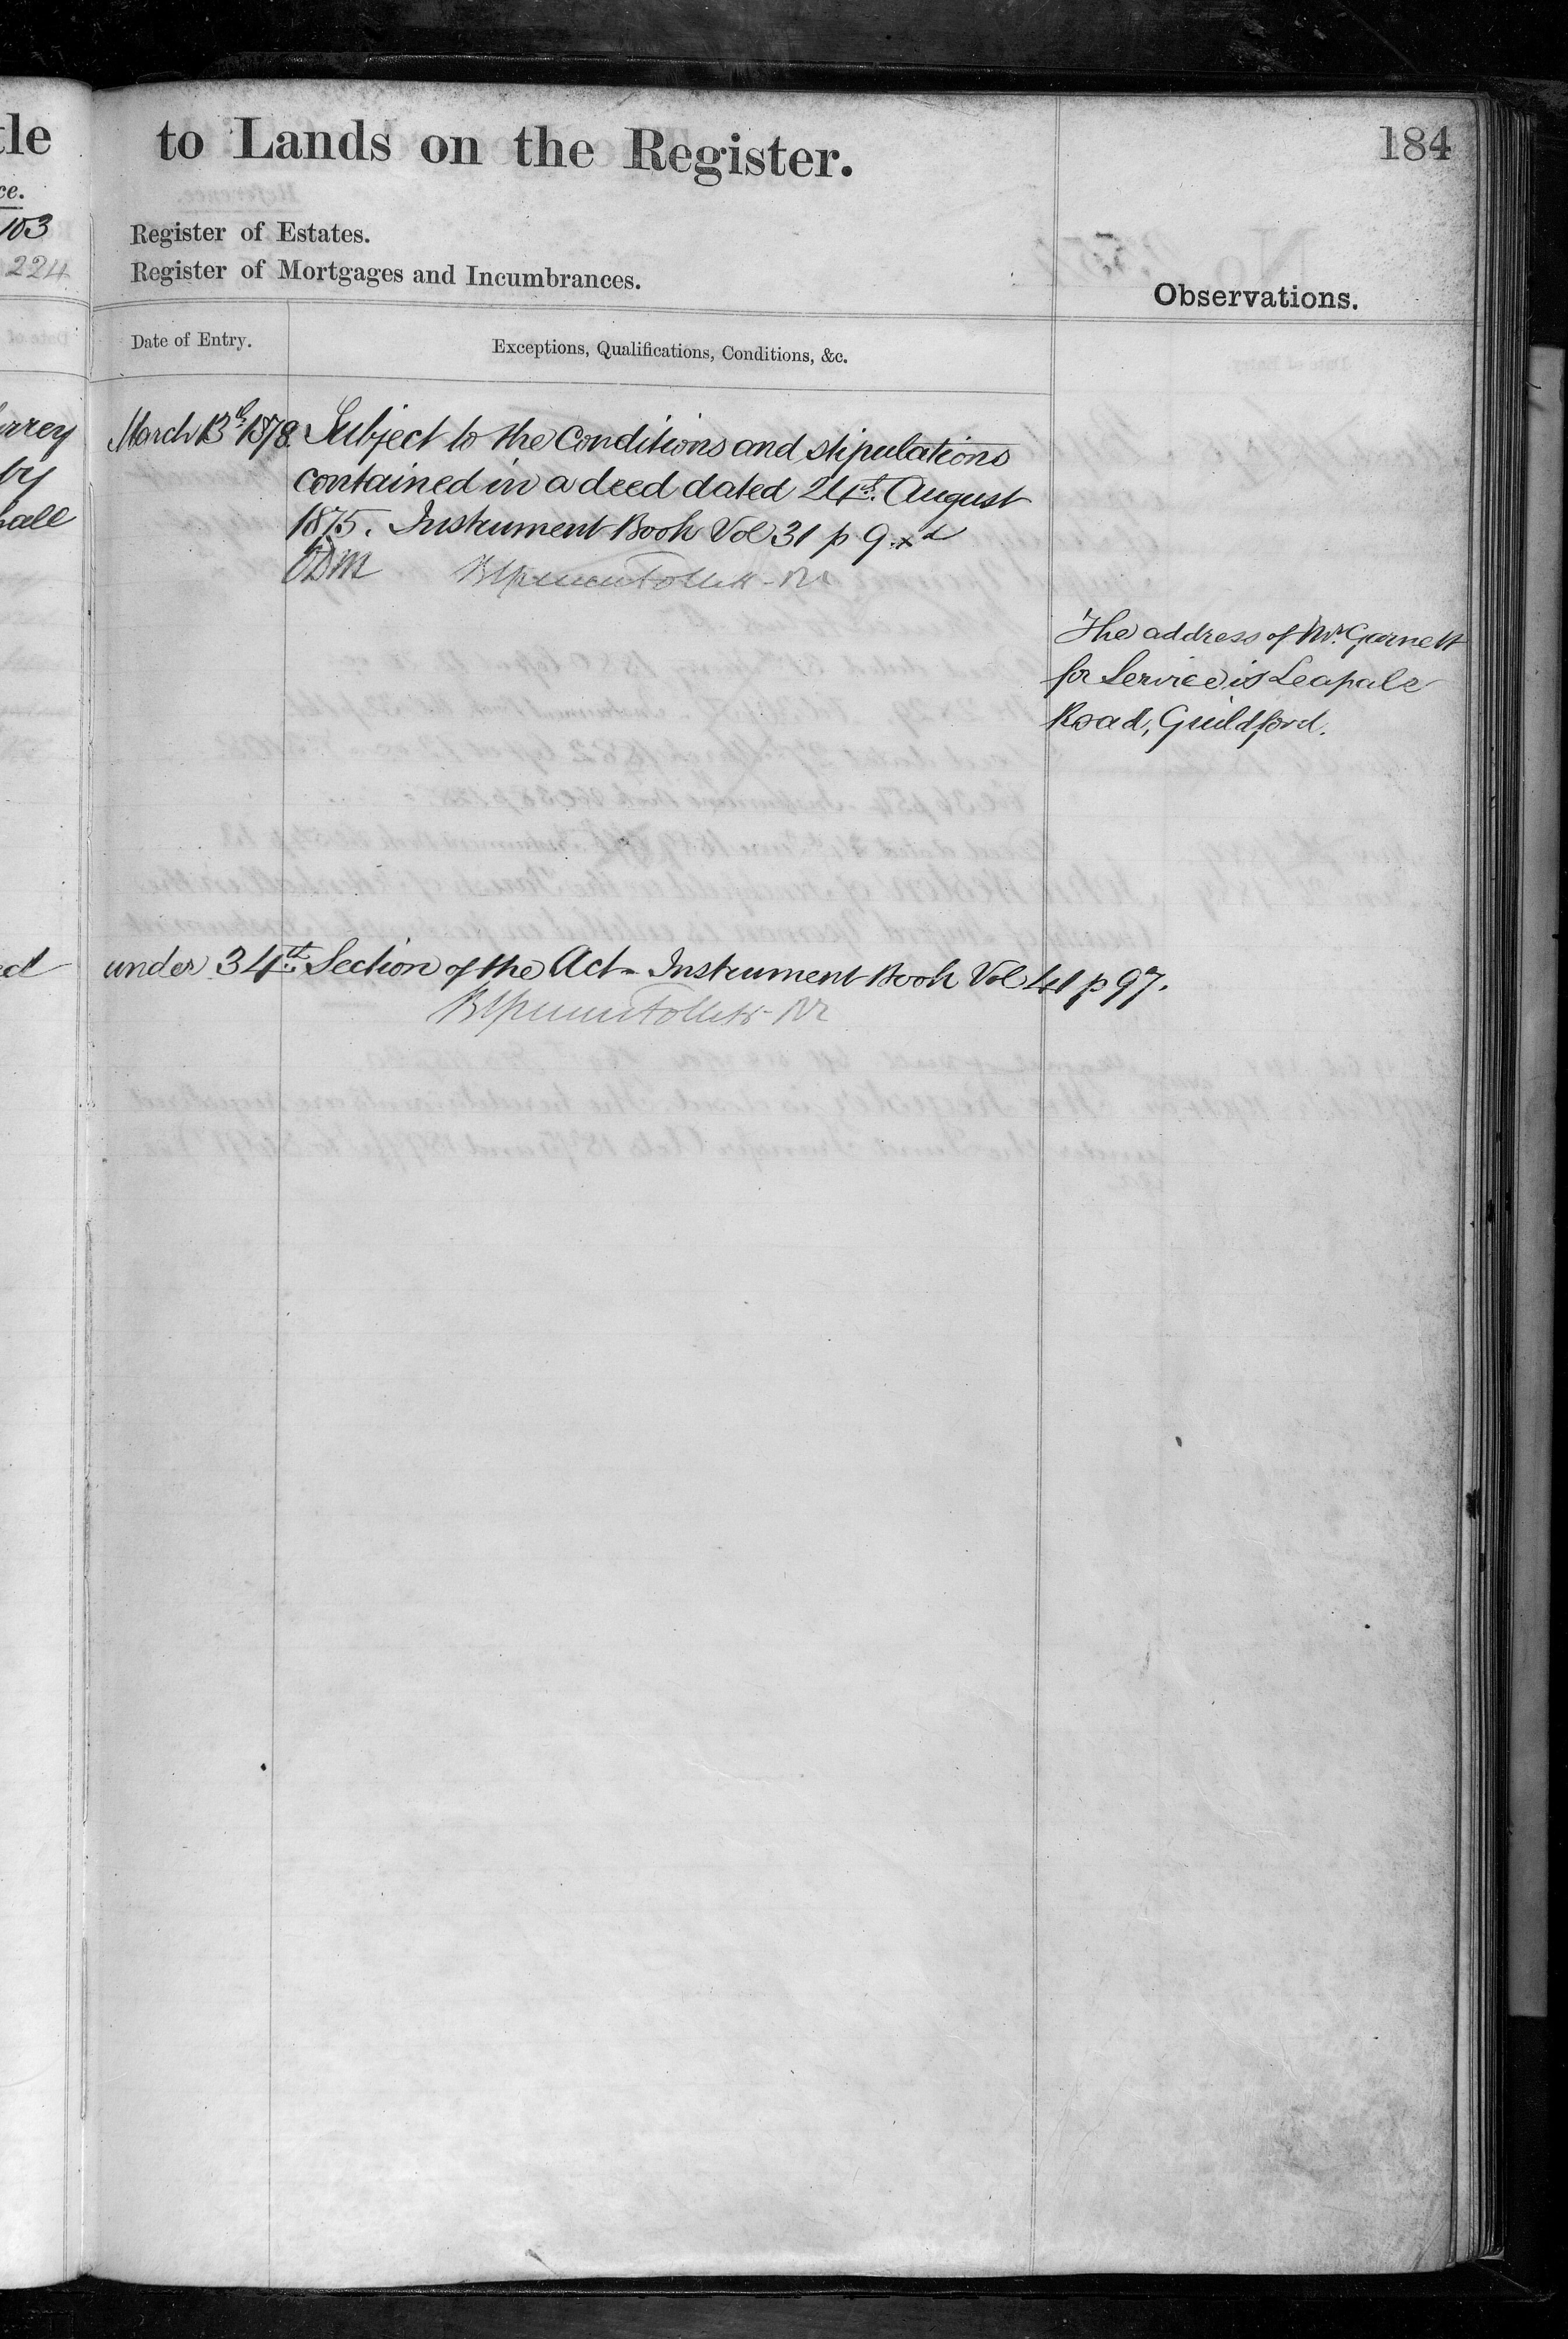 tle
ce.
103
224
urrey
by
hall
ed
to Lands on the Register.
184
Register of Estates.
Register of Mortgages and Incumbrances.
Observations.
Date of Entry.
Exceptions, Qualifications, Conditions, &c.
March 13th 1878. Subject to the conditions and stipulations
contained in a deed dated 24th August
1875. Instrument Book Vol 31 p 9
The address of Mr. Garnett
for Service is Leapale
Road, Guildford.
under 34th Section of the Act - Instrument Book Vol 41 p 97.